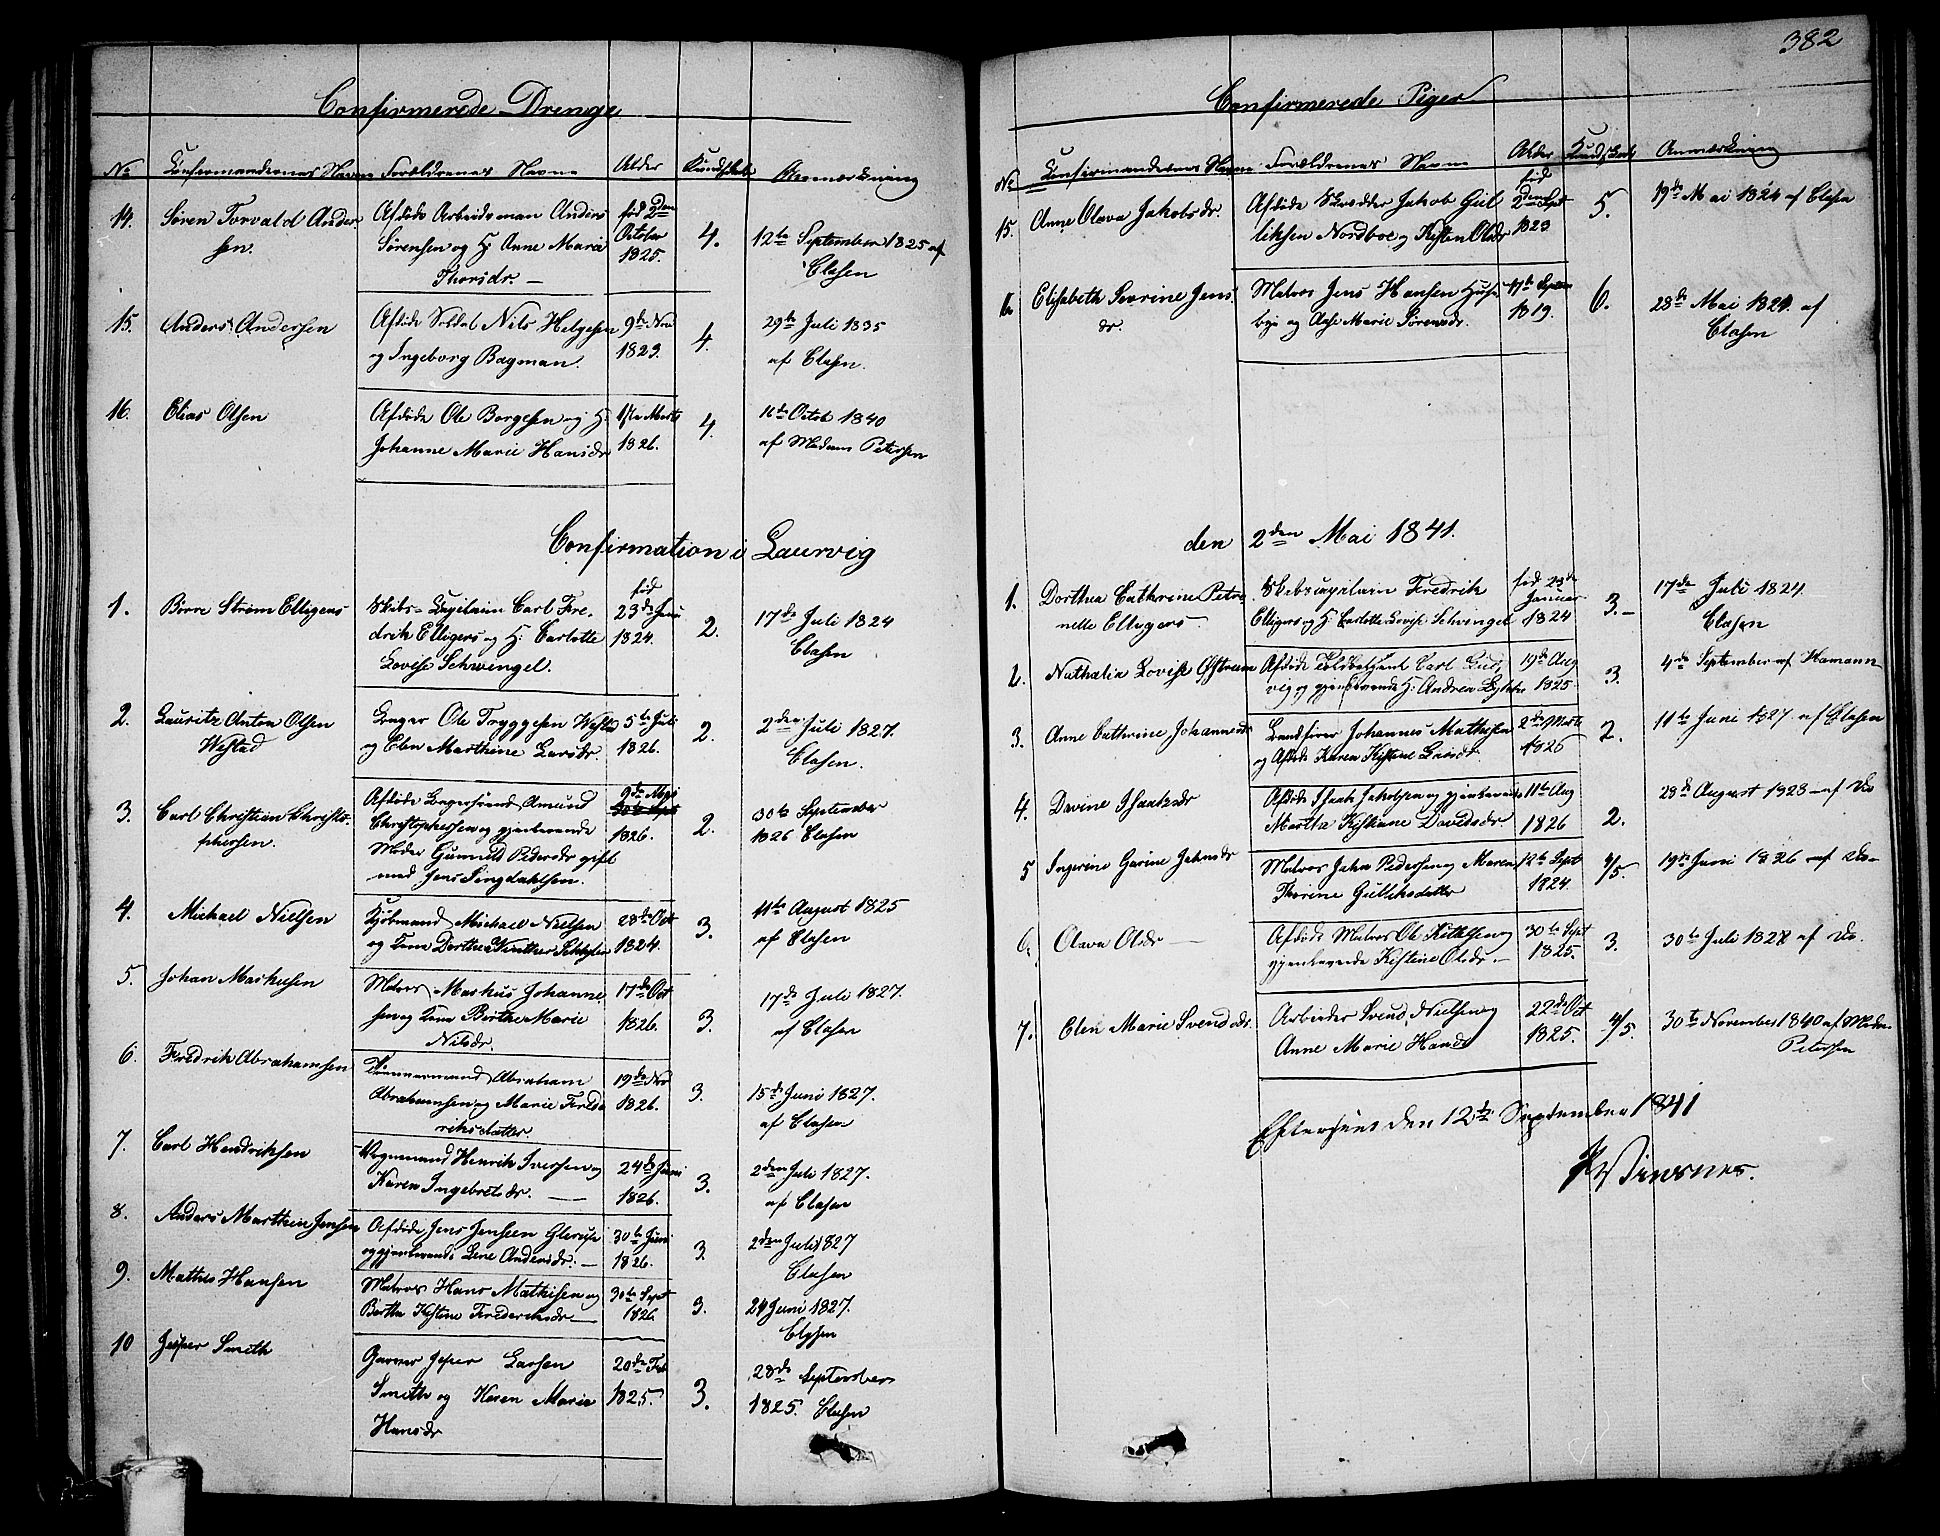 382
Confirmerede Drenge
No Confirmandernes Navne Forældrenes Navne Alder Kundskab Anmærkning
14. Søren Torvald Ander- Afdøde Arbeidsmand Anders fød 2den
sen. Sørensen og H: Anne Marie October 4. 12te September 1825 af
Thorsdr. 1825. Clasen
15. Anders Andersen Afdøde Soldat Nils Helgesen 9de Nov 29de Juli 1835
og Ingeborg Bagman. 1823. 4. af Clasen.
16. Elias Olsen Afdøde Ole Borgesen og H: Marts 11te Octob 1840
Johanne Marie Hansdr 1826. 4. af Madam Petersen
Confirmation i Laurvig
1. Børre Strøm Elligers Skibs-Capitain Carl Fre- fød 23de Janu 17de Juli 1824
drik Elligers og H: Carlotte 1824. 2. Clasen
Lovise Schwengel.
2. Lauritz Anton Olsen Ole Tryggesen Westad 5te Juli 2den Juli 1827.
Westad og Elen Marthine Larsdr. 1826. 2. Clasen.
3. Carl Christian Christo- Afdøde Amund 9de 30te September
phersen. Christophersen og gjenlevende 1826. 2. 1826 Clasen
Moder Gunnild Pedersdr gift
med Jens Singdahlsen.
4. Michael Nielsen Michael Nielsen 28de Oct 11te August 1825
og Kone Dorthea 1824. 3. af Clasen
5. Johan Markusen Matros Markus Johanne- 17de Oct 17de Juli 1827.
sen og Kone Berthe Marie 1826. 3. af Clasen
Nilsdr.
6. Fredrik Abrahamsen Tømmermand Abraham 19de Nov 15de Juni 1827.
Abrahamsen og Marie Fred- 1826. 3. af Clasen
riksdatter.
7. Carl Hendriksen Vognmand Henrik Iversen og 24de Juni 2den Juli 1827.
Karen Ingebretsdr. 1826. 3. af Clasen
8. Anders Marthin Jensen Afdøde Jens Jensen 30te Juni 2den Juli 1827
og gjenlevende Lene Andersdr. 1826. 3. Clasen
9. Mathis Hansen Matros Hans Mathisen og 30te Sept 24 Juni 1827.
Berthe Kistine Frederiksdr 1826. 3. Clasen
10 Jesper Smith Garver Jesper Larsen 20de Feb 28de September
Smith og Karen Marie 1825. 3. 1825. Clasen
Hansdr
Confirmerede Piger
No Confirmandernes Navne Forældrenes Navne Alder Kundskab Anmærkning
15. Anne Olava Jakobsdr. Afdøde Skrædder Jakob Gul- fød 2den Sept 5. 19de Mai 1824 af Clasen
liksen Nordboe og Kisten Olsdr 1823
16 Elisabeth Severine Jens- Matros Jens Hansen Huse- 17de Septem 6. 28de Mai 1820 af
dr. bye og Aase Marie Sørensdr. 1819. Clasen
den 2den Mai 1841.
1. Dorthea Cathrine Petro- Skibscapitain Fredrik fød 23de Januar 17de Juli 1824
nelle Elligers Elligers og H: Carlotte Lovise Schwingel 1824 3. Clasen
2. Nathalia Lovise Østrum Afdøde Toldbetjent Carl Lud- 19de Aug 4de September af Hamann
vig og gjenlevende H: Andrea 1825. 3.
3. Anne Cathrine Johannesdr Johannes Mathisen 2den Marts 11te Juni 1827 af Clasen
og Afdøde Karen Kistine Larsdr. 1826 2.
4. Davine Isaksdr Afdøde Isak Jakobsen og gjenlevende 11te Aug 28de August 1828 af Do
Marthe Kistiane Davidsdr. 1826 2.
5 Ingerine Garine Jahnsdr Matros Jahn Pedersen og Maren 12te Sept 4/5. 19de Juni 1826 af Do
Thorine Gulliksdatter 1824.
6. Olava Olsdr Afdøde Matros Ole Kittelsen og 30te Sept 3. 30te Juli 1828 af Do.
gjenlevende Kistine Olsdr. 1825.
7. Elen Marie Svendsdr. Arbeider Svend Nielsen og 22de Oct 4/5. 30te November 1840 af Madm
Anne Marie Hansdr 1825. Petersen
Efterseet den 12te September 1841
Winsnes.